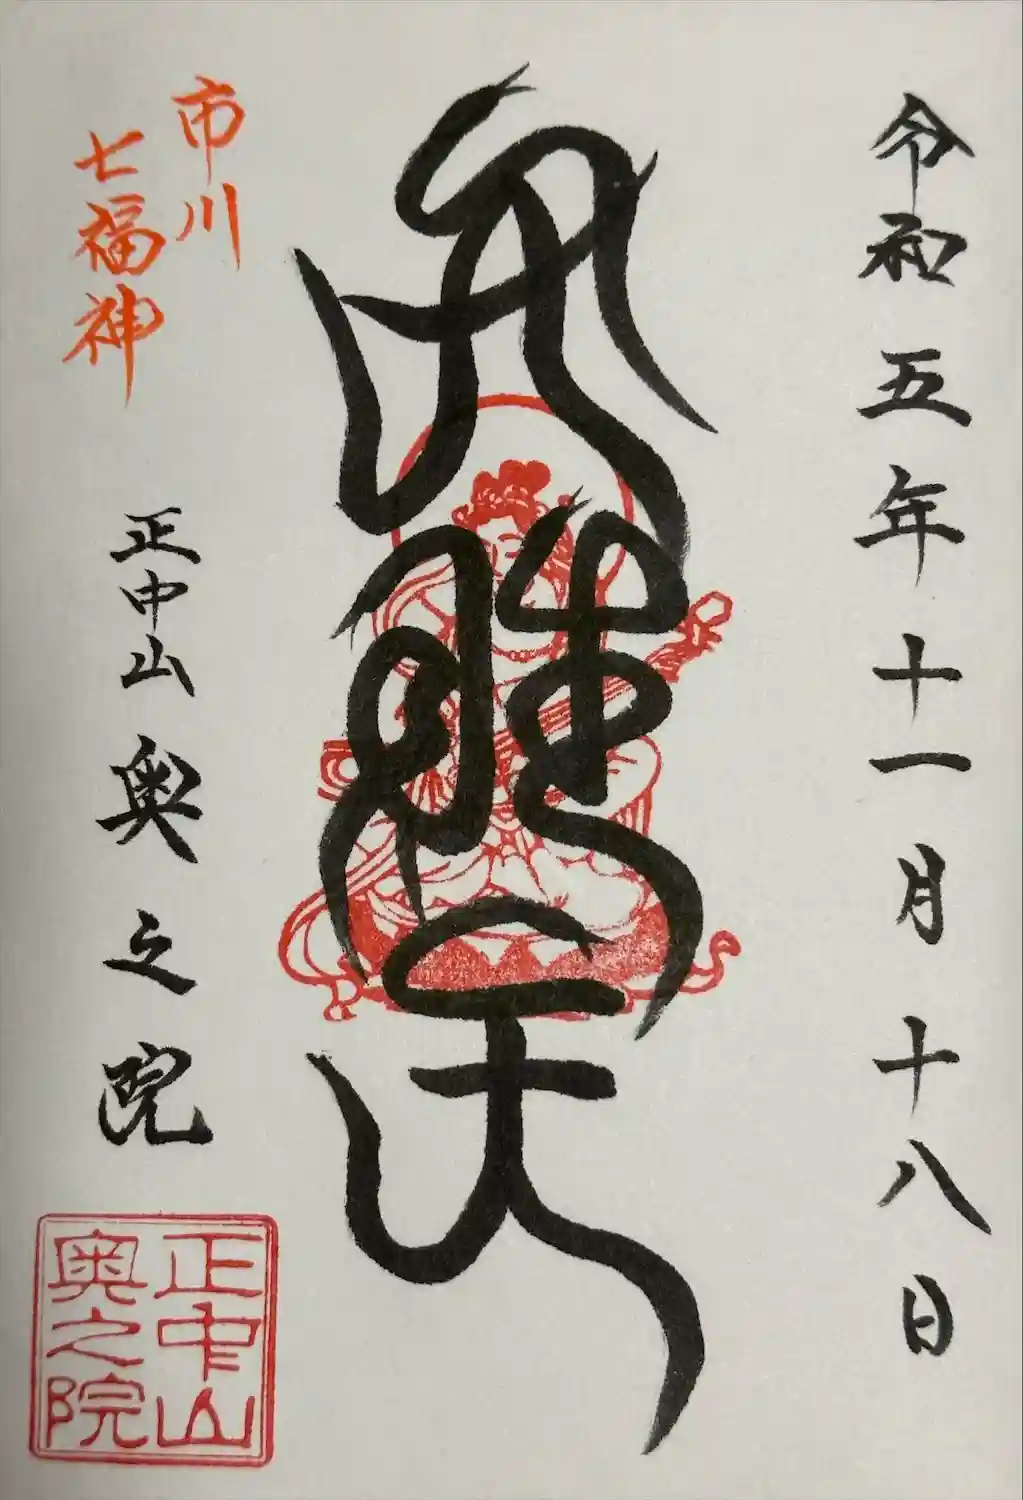 令和五年十一月十八日
弁財天
市川
七福神
正中山奥之院
正中山
奥之院